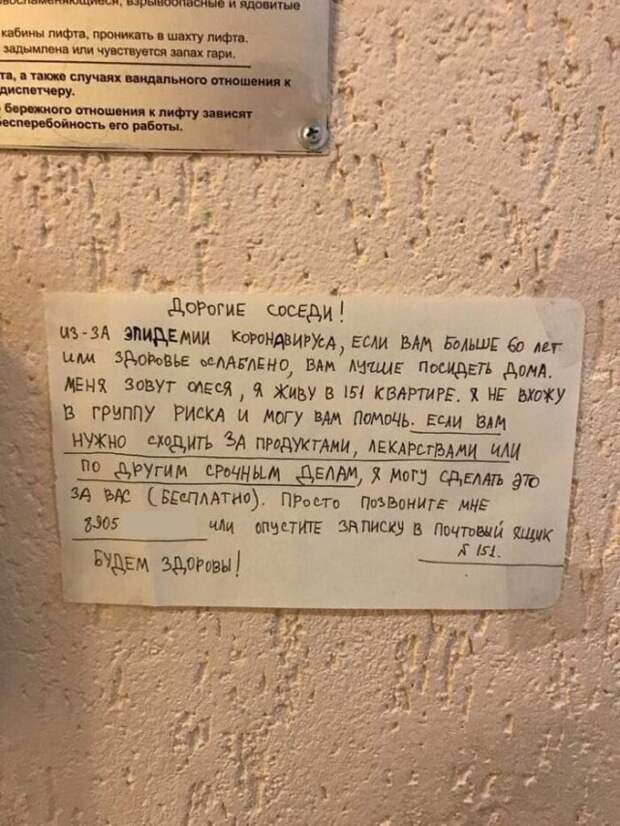 взрывоопасные и ядовитые
кабины лифта, проникать в шахту лифта.
задымлена или чувствуется запах гари.
та, а также случаях вандального отношения к
диспетчеру.
бережного отношения к лифту зависят
бесперебойность его работы.
ДОРОГИЕ СОСЕДИ!
ИЗ-ЗА ЭПИДЕМИИ КОРОНАВИРУСА, ЕСЛИ ВАМ БОЛЬШЕ 60 ЛЕТ
ИЛИ ЗДОРОВЬЕ ОСЛАБЛЕНО, ВАМ ЛУЧШЕ ПОСИДЕТЬ ДОМА.
МЕНЯ ЗОВУТ ОЛЕСЯ, Я ЖИВУ В 151 КВАРТИРЕ. Я НЕ ВХОЖУ
В ГРУППУ РИСКА И МОГУ ВАМ ПОМОЧЬ. ЕСЛИ ВАМ
НУЖНО СХОДИТЬ ЗА ПРОДУКТАМИ, ЛЕКАРСТВАМИ ИЛИ
ПО ДРУГИМ СРОЧНЫМ ДЕЛАМ, Я МОГУ СДЕЛАТЬ ЭТО
ЗА ВАС (БЕСПЛАТНО). ПРОСТО ПОЗВОНИТЕ МНЕ
8905 ИЛИ ОПУСТИТЕ ЗАПИСКУ В ПОЧТОВЫЙ ЯЩИК
№ 151.
БУДЕМ ЗДОРОВЫ!